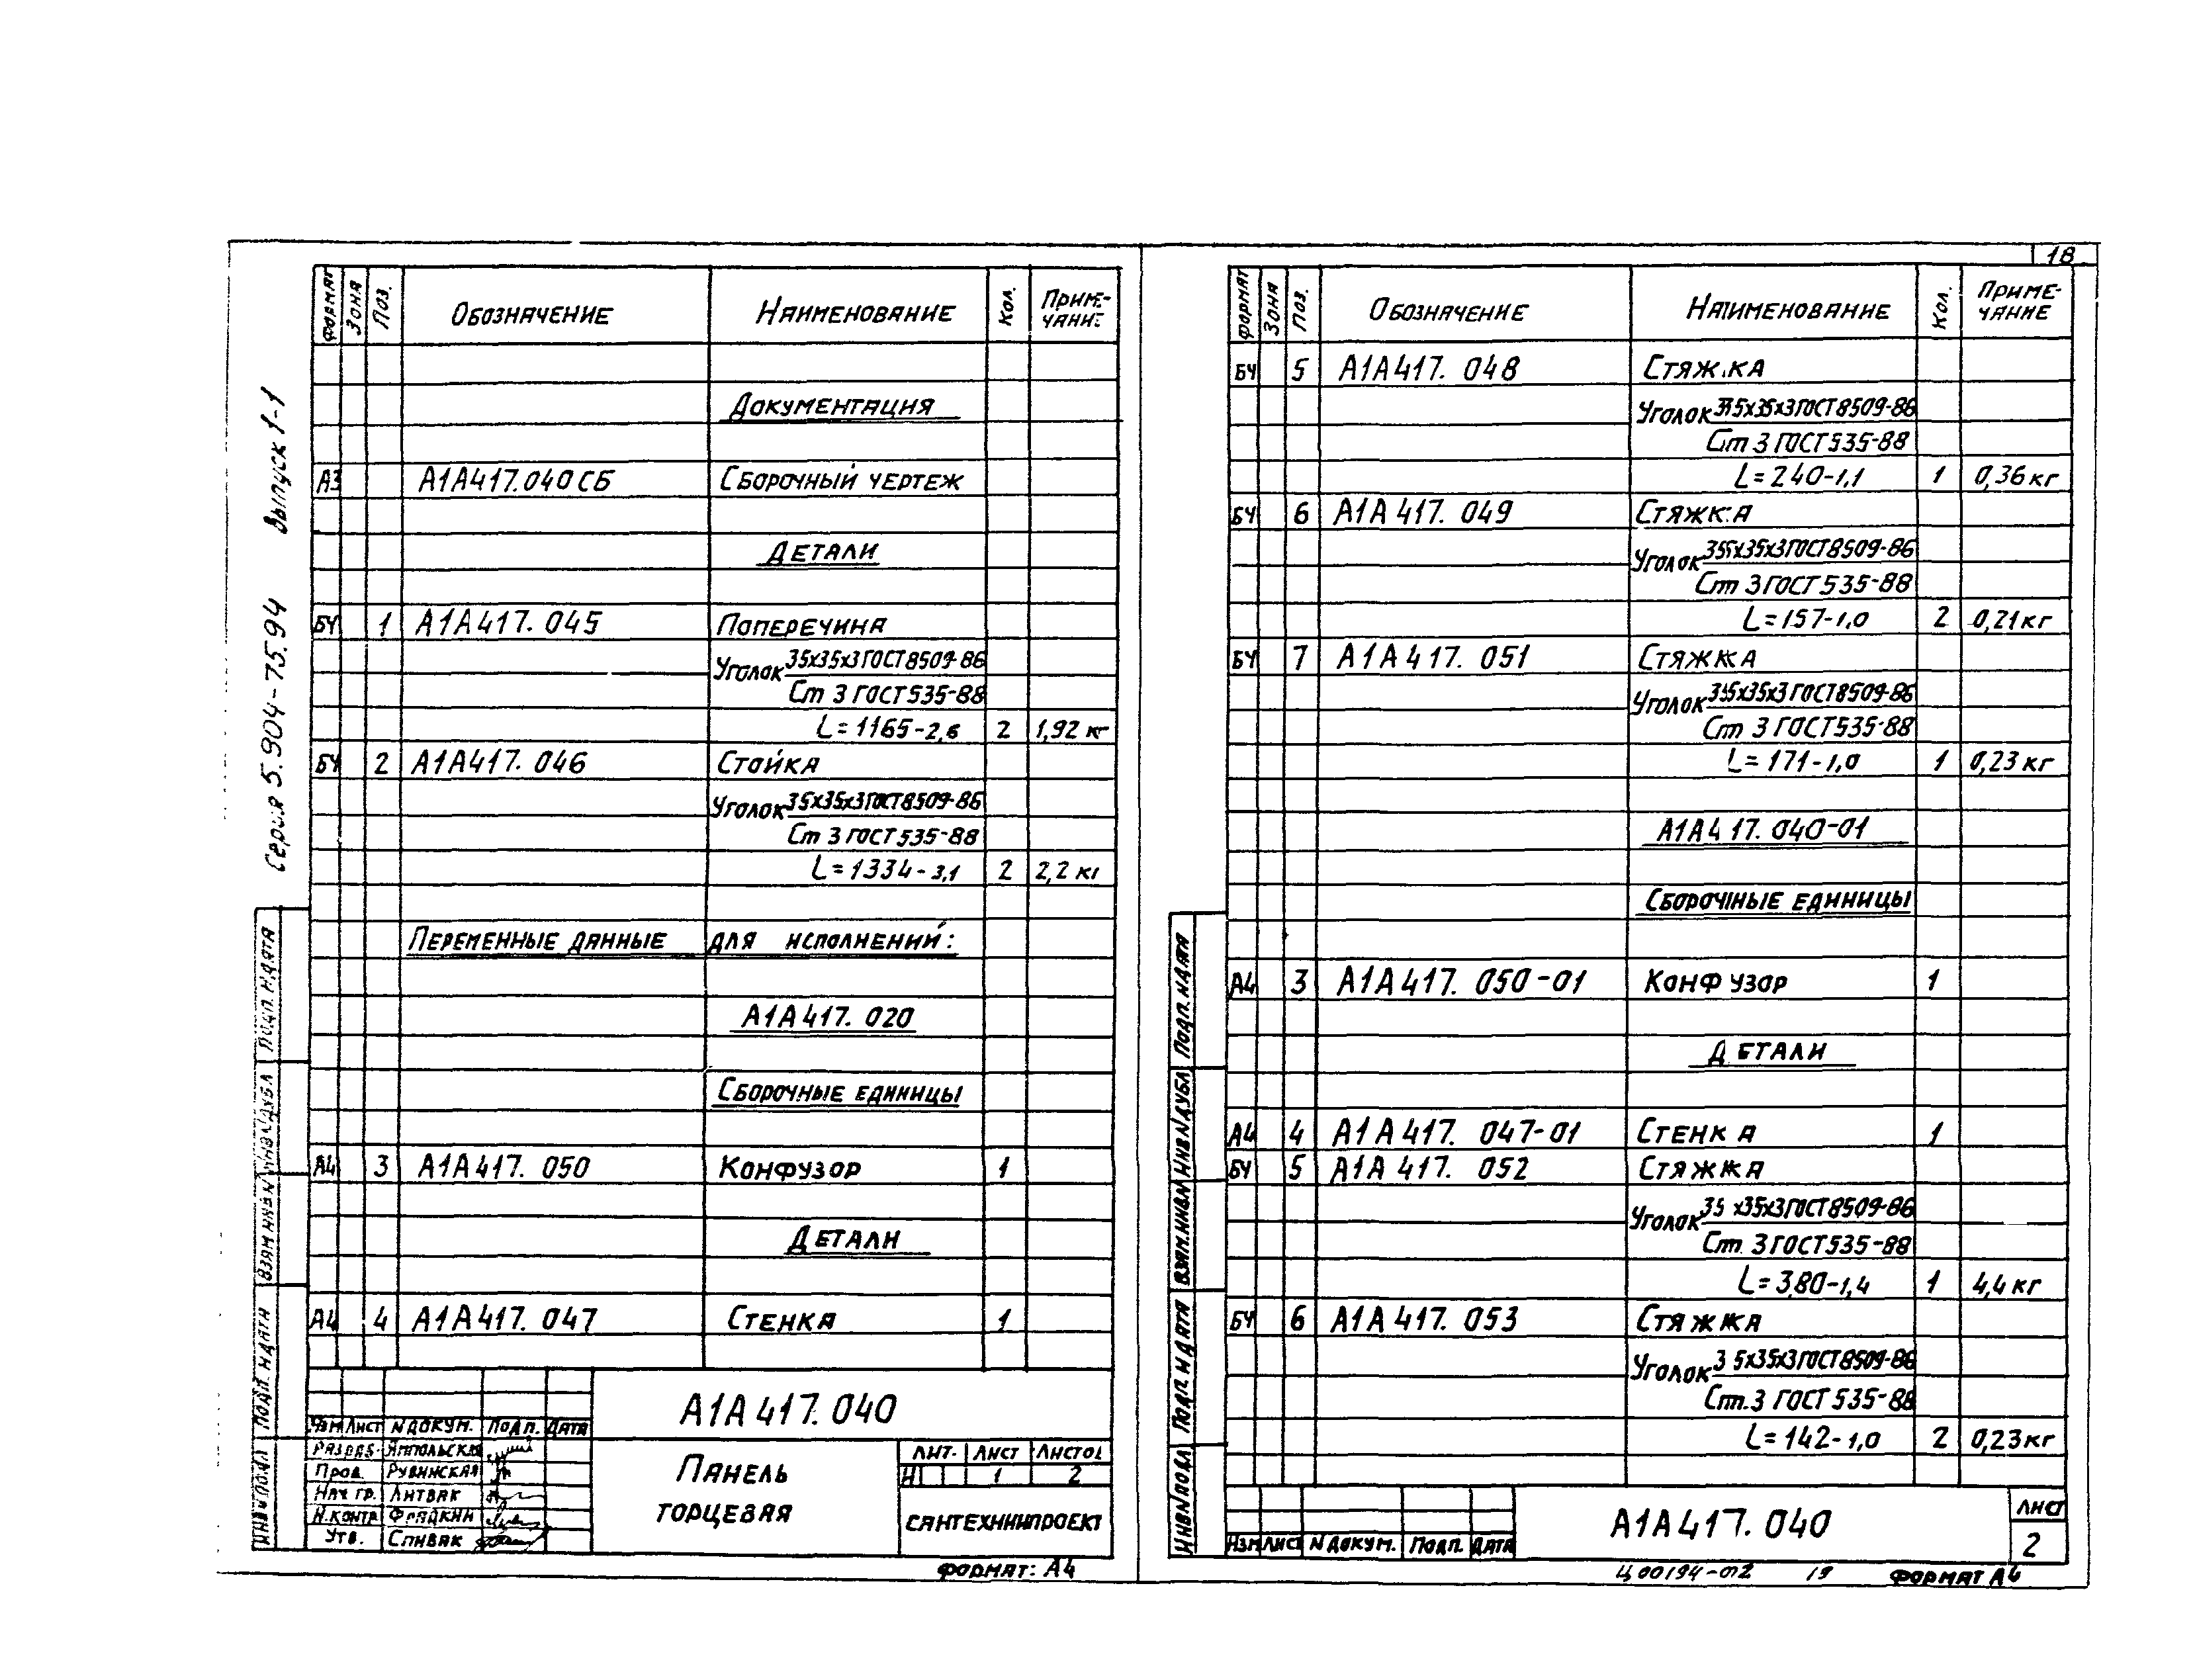 18
Серия 5.904-75.94 Выпуск 1-1
Формат Зона Поз. Обозначение Наименование Кол. Приме-
чание
Документация
А3 А1А417.040 СБ Сборочный чертеж
Детали
БЧ 1 А1А417.045 Поперечина
Уголок 35х35х3 ГОСТ 8509-86
Ст 3 ГОСТ 535-88
L=1165-2,6 2 1,92 кг
БЧ 2 А1А417.046 Стойка
Уголок 35х35х3 ГОСТ 8509-86
Ст 3 ГОСТ 535-88
L=1334-3,1 2 2,2 кг
Переменные данные для исполнений:
А1А417.020
Сборочные единицы
А4 3 А1А417.050 Конфузор 1
Детали
А4 4 А1А417.047 Стенка 1
Инв № подл Подп. и дата Взам инв № Инв № дубл Подп. и дата
Изм Лист № докум. Подп. Дата
Разраб. Ямпольская
Пров. Рувинская
Нач гр. Литвак
Н.контр Фрадкин
Утв. Спивак
А1А417.040
Панель
торцевая
Лит. Лист Листов
И 1 2
Сантехниипроект
Формат: А4
Формат Зона Поз. Обозначение Наименование Кол. Приме-
чание
БЧ 5 А1А417.048 Стяжка
Уголок 35х35х3 ГОСТ 8509-86
Ст 3 ГОСТ 535-88
L=240-1,1 1 0,36 кг
БЧ 6 А1А417.049 Стяжка
Уголок 35х35х3 ГОСТ 8509-86
Ст 3 ГОСТ 535-88
L=157-1,0 2 0,21 кг
БЧ 7 А1А417.051 Стяжка
Уголок 35х35х3 ГОСТ 8509-86
Ст 3 ГОСТ 535-88
L=171-1,0 1 0,23 кг
А1А417.040-01
Сборочные единицы
А4 3 А1А417.050-01 Конфузор 1
Детали
А4 4 А1А417.047-01 Стенка 1
БЧ 5 А1А417.052 Стяжка
Уголок 35х35х3 ГОСТ 8509-86
Ст 3 ГОСТ 535-88
L=380-1,4 1 4,4 кг
БЧ 6 А1А417.053 Стяжка
Уголок 35х35х3 ГОСТ 8509-86
Ст.3 ГОСТ 535-88
L=142-1,0 2 0,23 кг
Инв № подл Подп. и дата Взам. инв № Инв № дубл Подп. и дата
Изм Лист № докум. Подп. Дата
А1А417.040
Лист
2
Ц00194-02 19 Формат А4